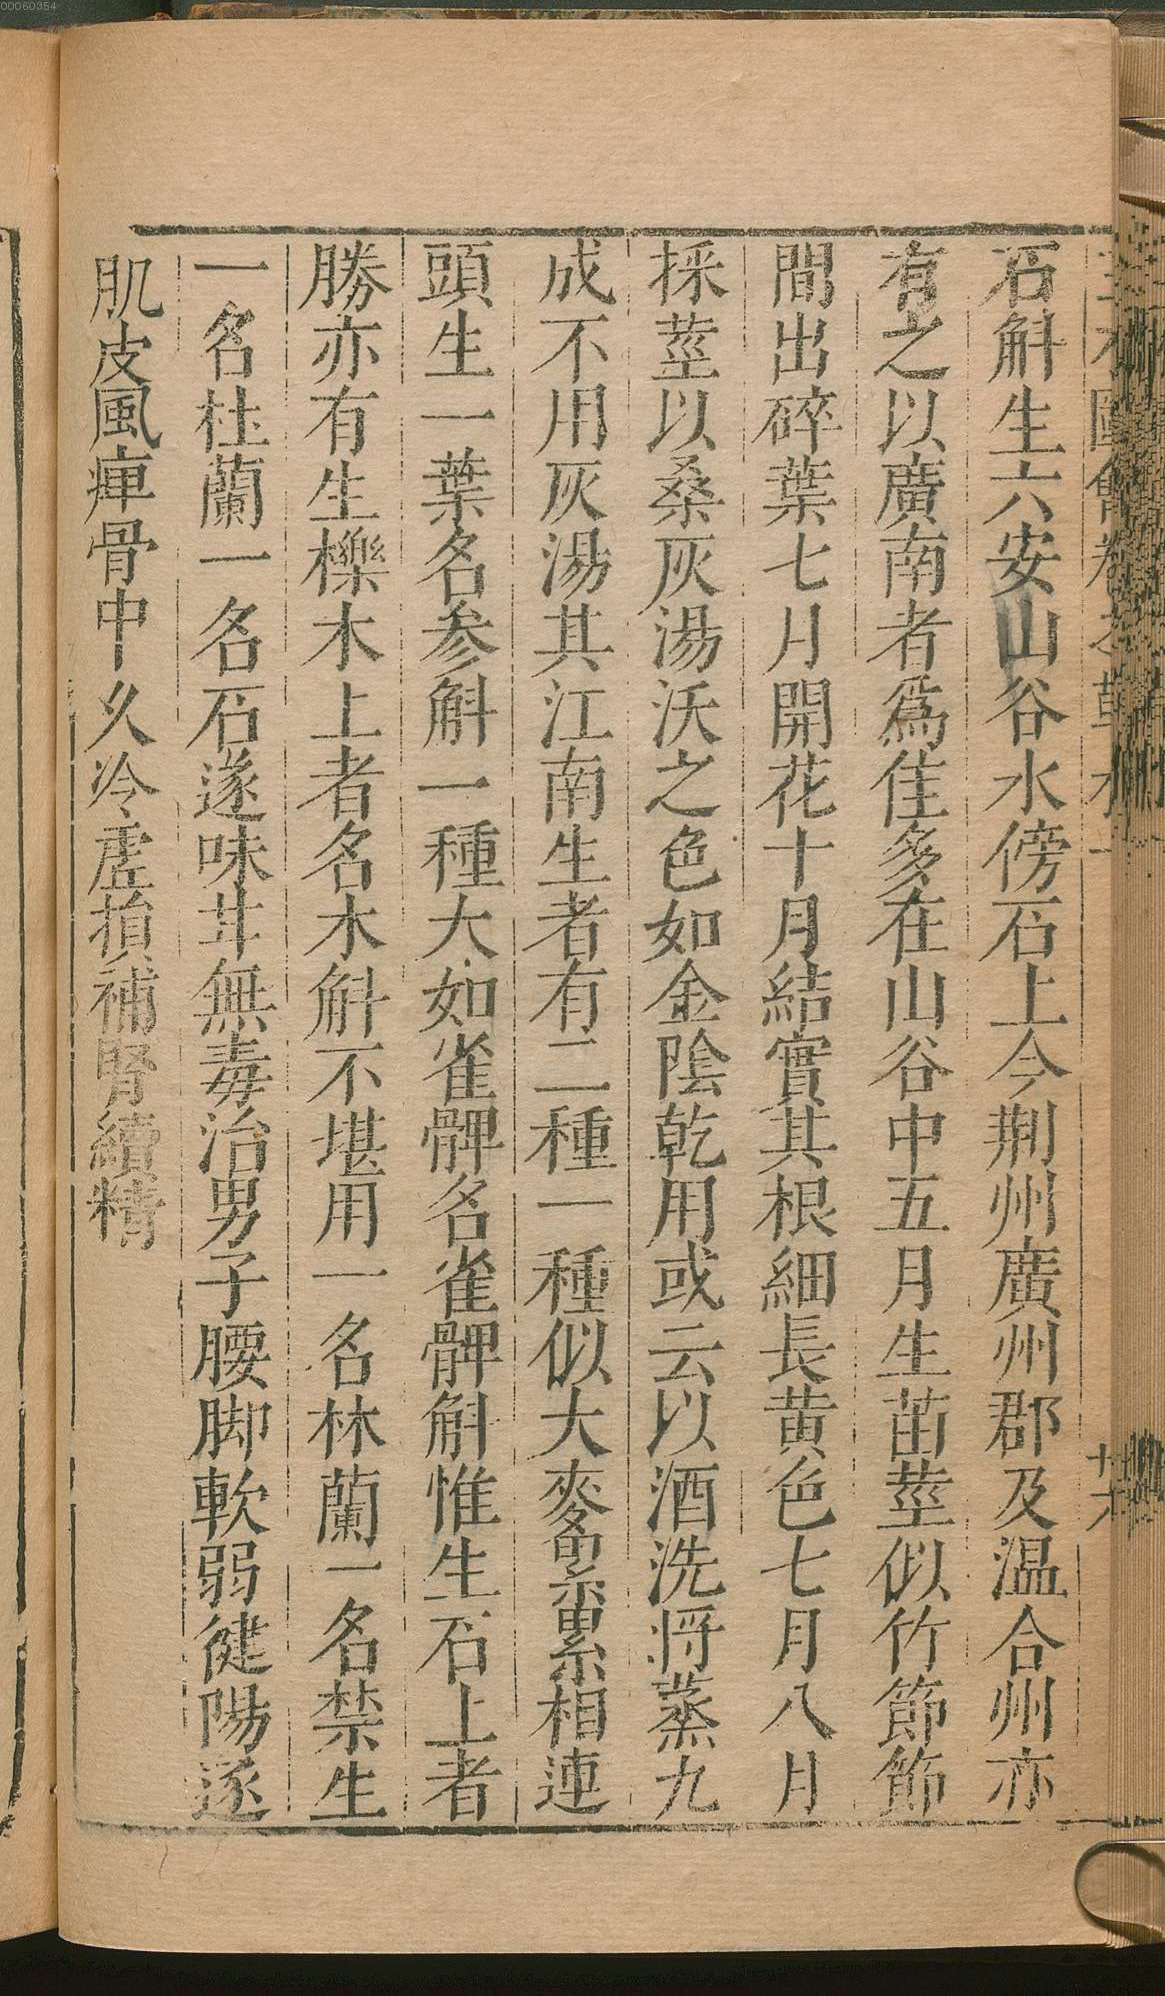 00060354
石斛生六安山谷水傍石上今荆州廣州郡及温合州亦
有之以廣南者爲佳多在山谷中五月生苗莖似竹節節
間出碎葉七月開花十月結實其根細長黄色七月八月
採莖以桑灰湯沃之色如金陰乾用或云以酒洗捋蒸九
成不用灰湯其江南生者有二種一種似大麥累累相連
頭生一葉名参斛一種大如雀髀名雀髀斛惟生石上者
勝亦有生櫟木上者名木斛不堪用一名林蘭一名禁生
一名杜蘭一名石遂味甘無毒治男子腰脚軟弱健陽逐
肌皮風痺骨中久冷虚損補腎續精